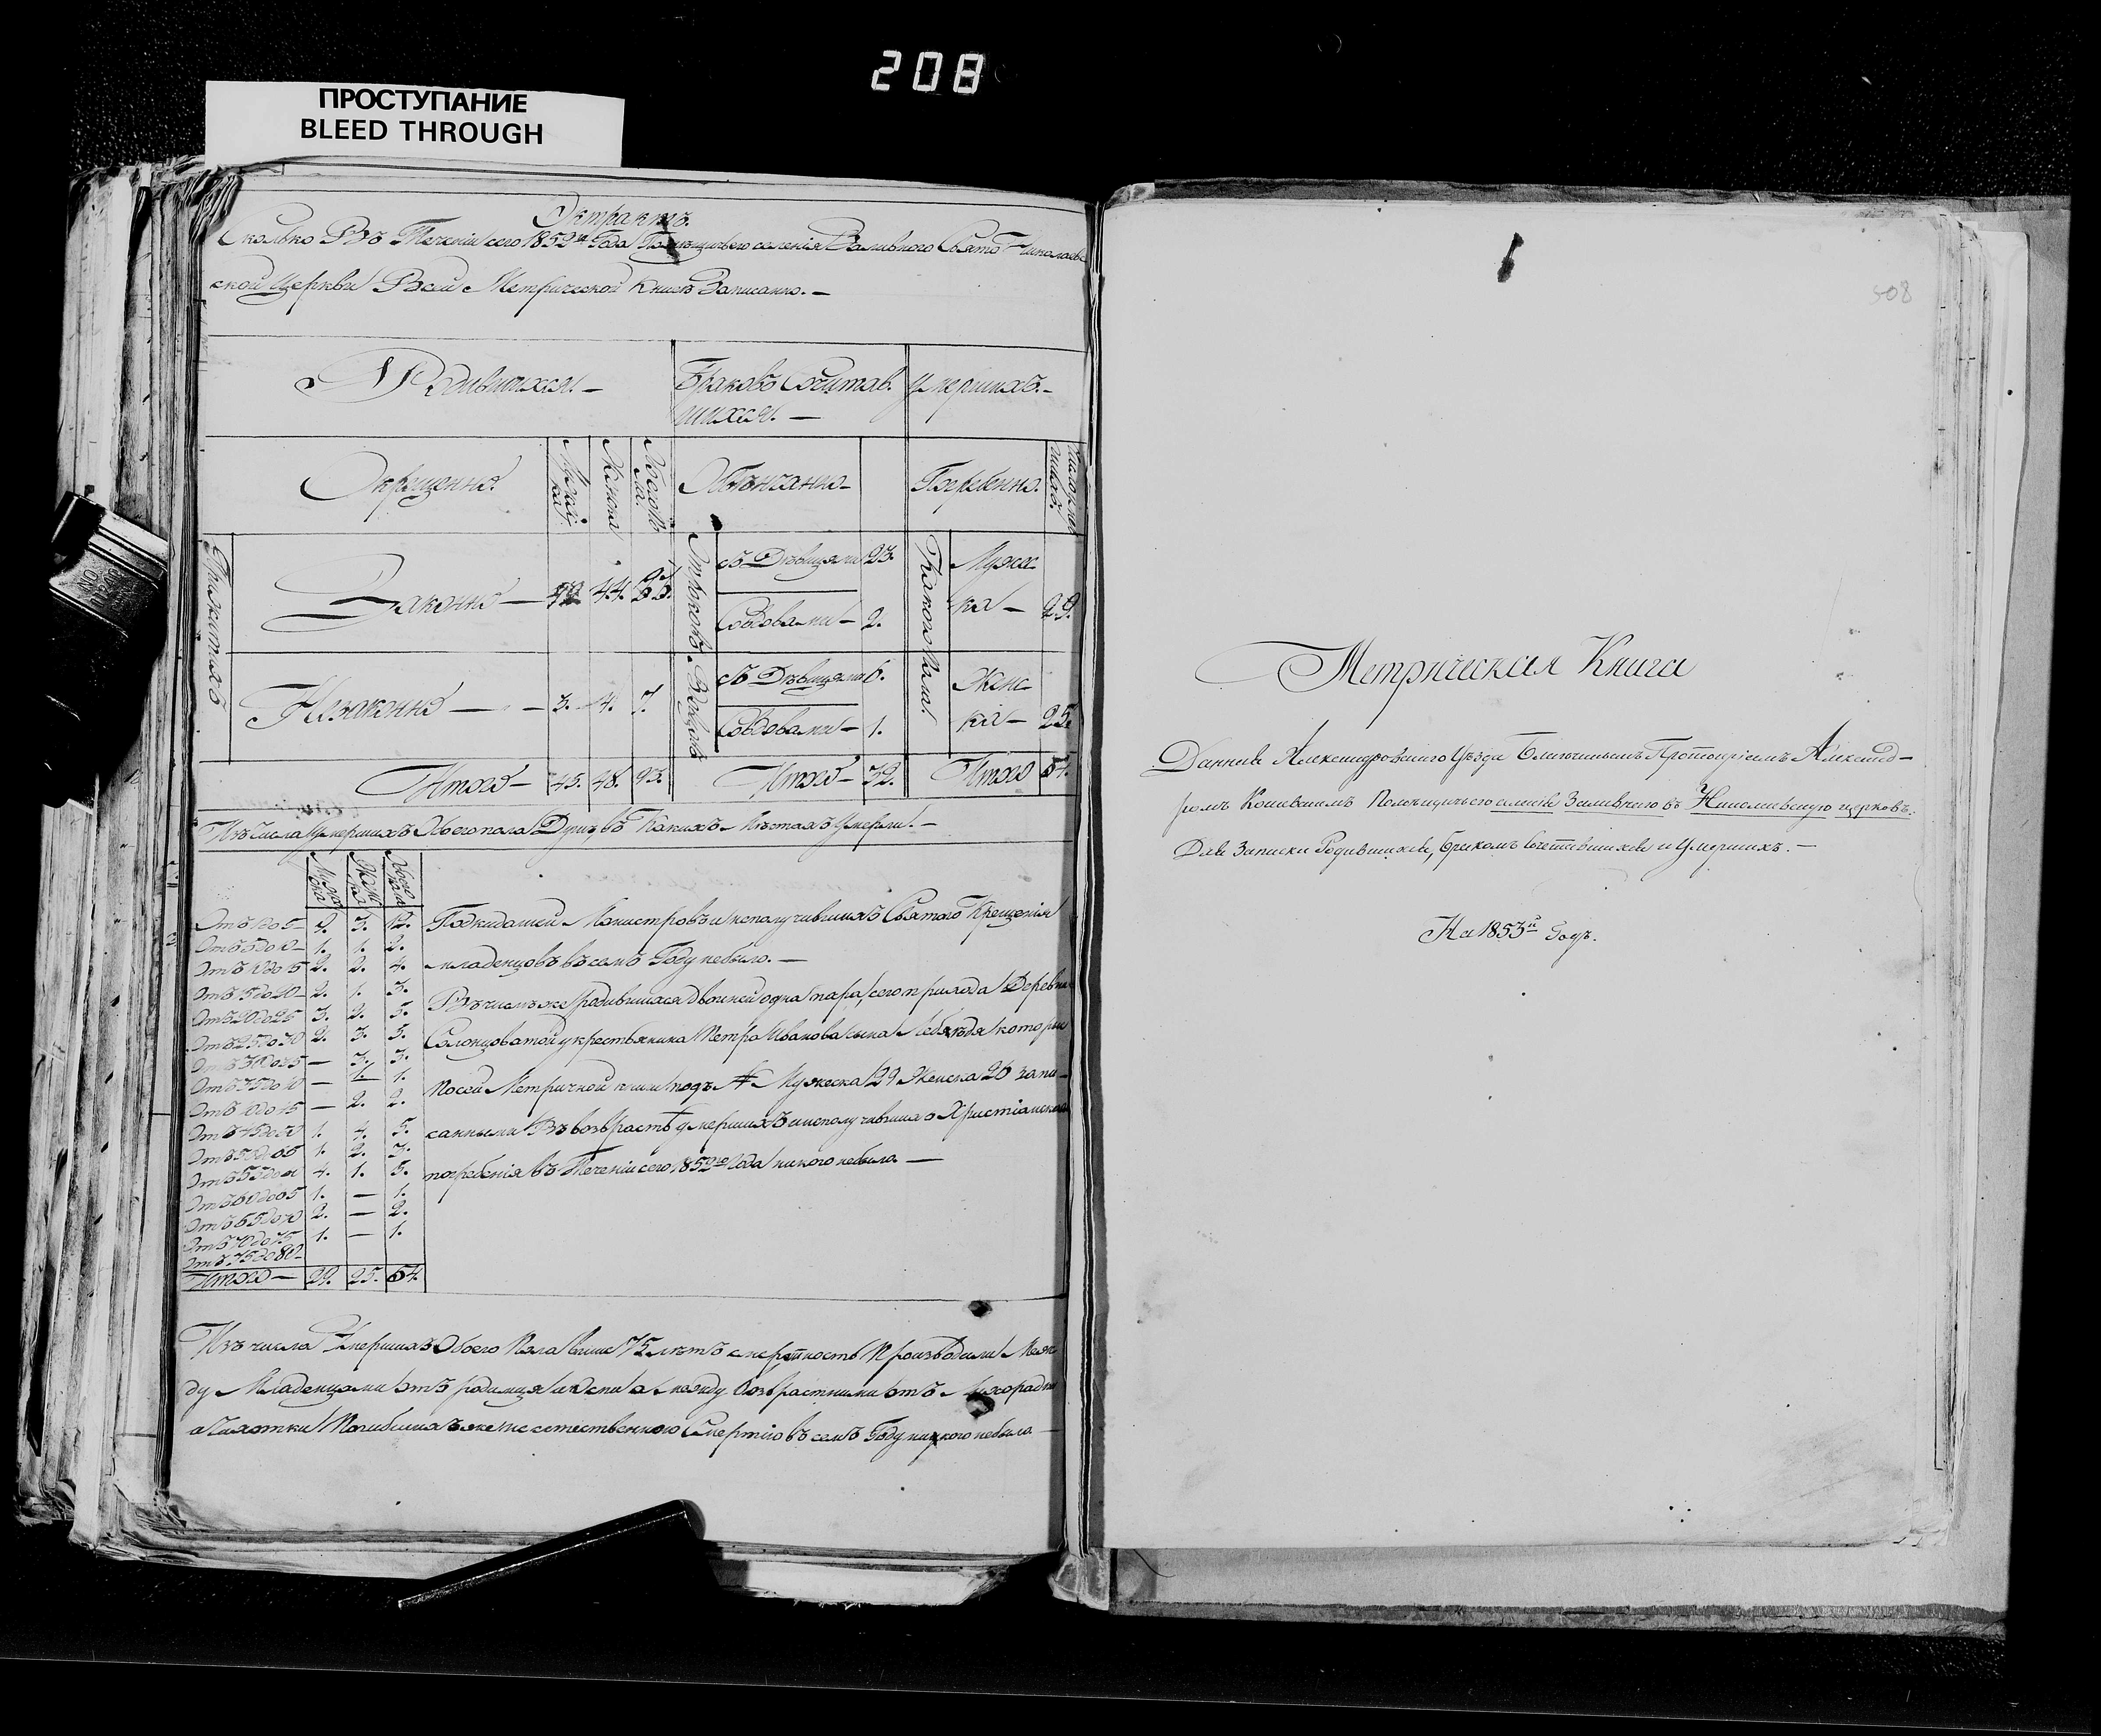 208
ПРОСТУПАНИЕ
BLEED THROUGH
Эктрактъ.
Сколько Въ Теченіи сего 1852го Года Помѣщичьего селенія Заливного Свято Николаев
ской Церкви Всей Метрической Книгѣ Записанно. —
Родившихся. — Браковъ Сочитав. Умершихъ. —
шихся. —
Окрещенно. Мужеска. Женска Обоего пола. Обвѣнчанно — Погребенно. Число умершихъ.
Прижитыхъ Законно — 42 44. 86. Отроковъ съ Дѣвицами 23. Какого Пола. Мужес-
Совдовами — 2. ка — 29.
Незаконно — — 3. 4. 7. Вдовцовъ съ Дѣвицами 6. Женс-
Совдовами — 1. ка — 25.
Итого — 45. 48. 93. Итого — 32. Итого 54.
Изъ Числа Умершихъ Обоего пола Душъ, въ Какихъ Лѣтахъ Умерли. —
Отъ 1 до 5 — 9. 3. 12.
Отъ 5 до 10 — 1. 1. 2.
Отъ 10 до 15 2. 2. 4.
Отъ 15 до 20 — 2. 1. 3.
Отъ 20 до 25 3. 2. 5.
Отъ 25 до 30 2. 3. 5.
Отъ 30 до 35 — 3. 3.
Отъ 35 до 40 — 1. 1.
Отъ 40 до 45 — 2. 2.
Отъ 45 до 50 1. 4. 5.
Отъ 50 до 55 1. 2. 3.
Отъ 55 до 60 4. 1. 5.
Отъ 60 до 65 1. — 1.
Отъ 65 до 70 2. — 2.
Отъ 70 до 75 1. — 1.
Отъ 75 до 80 —
Итого — 29. 25. 54.
Подкидашей Монистровъ и неполучившихъ Святого Крещенія
младенцовъ въ семъ Году небыло. —
Въ числѣ же родившихся двойней одна пара, сего прихода Деревни
Солонцоватой у крестьянина Петра Иванова сына Лебѣдя которые
посей Метричной книги подъ № Мужеска 29 Женска 26 запи-
санными Въ возврастѣ умершихъ и неполучившихъ Христіанского
погребенія въ Теченіи сего 1852го Года никого небыло. —
Изъ числа Умершихъ Обоего Пола свыше 75 лѣтъ смертность Производили Меж-
ду Младенцами отъ родимца и оспи а между Возврастними отъ Лихорадки
а Чахотки Погибшихъ же не естественною Смертію въ семъ Году никого небыло —
508
Метрическая Книга
Данная Александровского Уѣзда Благочиннымъ Протоіереемъ Александ-
ромъ Кошевскимъ Помѣщичьего селенія Заливного въ Николаевскую церковь.
Для Записки Родившихся, бракомъ сочетавшихся и Умершихъ. —
На 1853й Годъ.